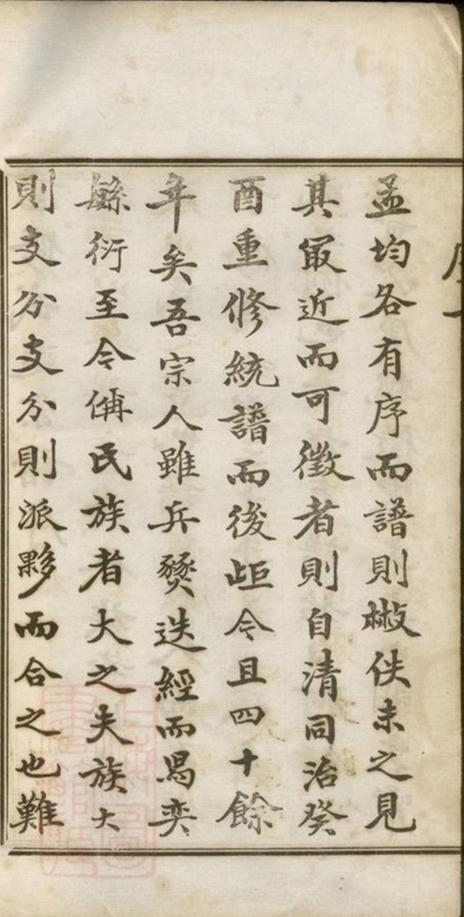 孟均各有序而譜則散佚未之見
其冣近而可徵者則自清同治癸
酉重修統譜而後岠今且四十餘
年矣吾宗人雖兵燹迭經而曷奕
緐衍至今偁民族者大之夫族大
則支分支分則派夥而合之也難